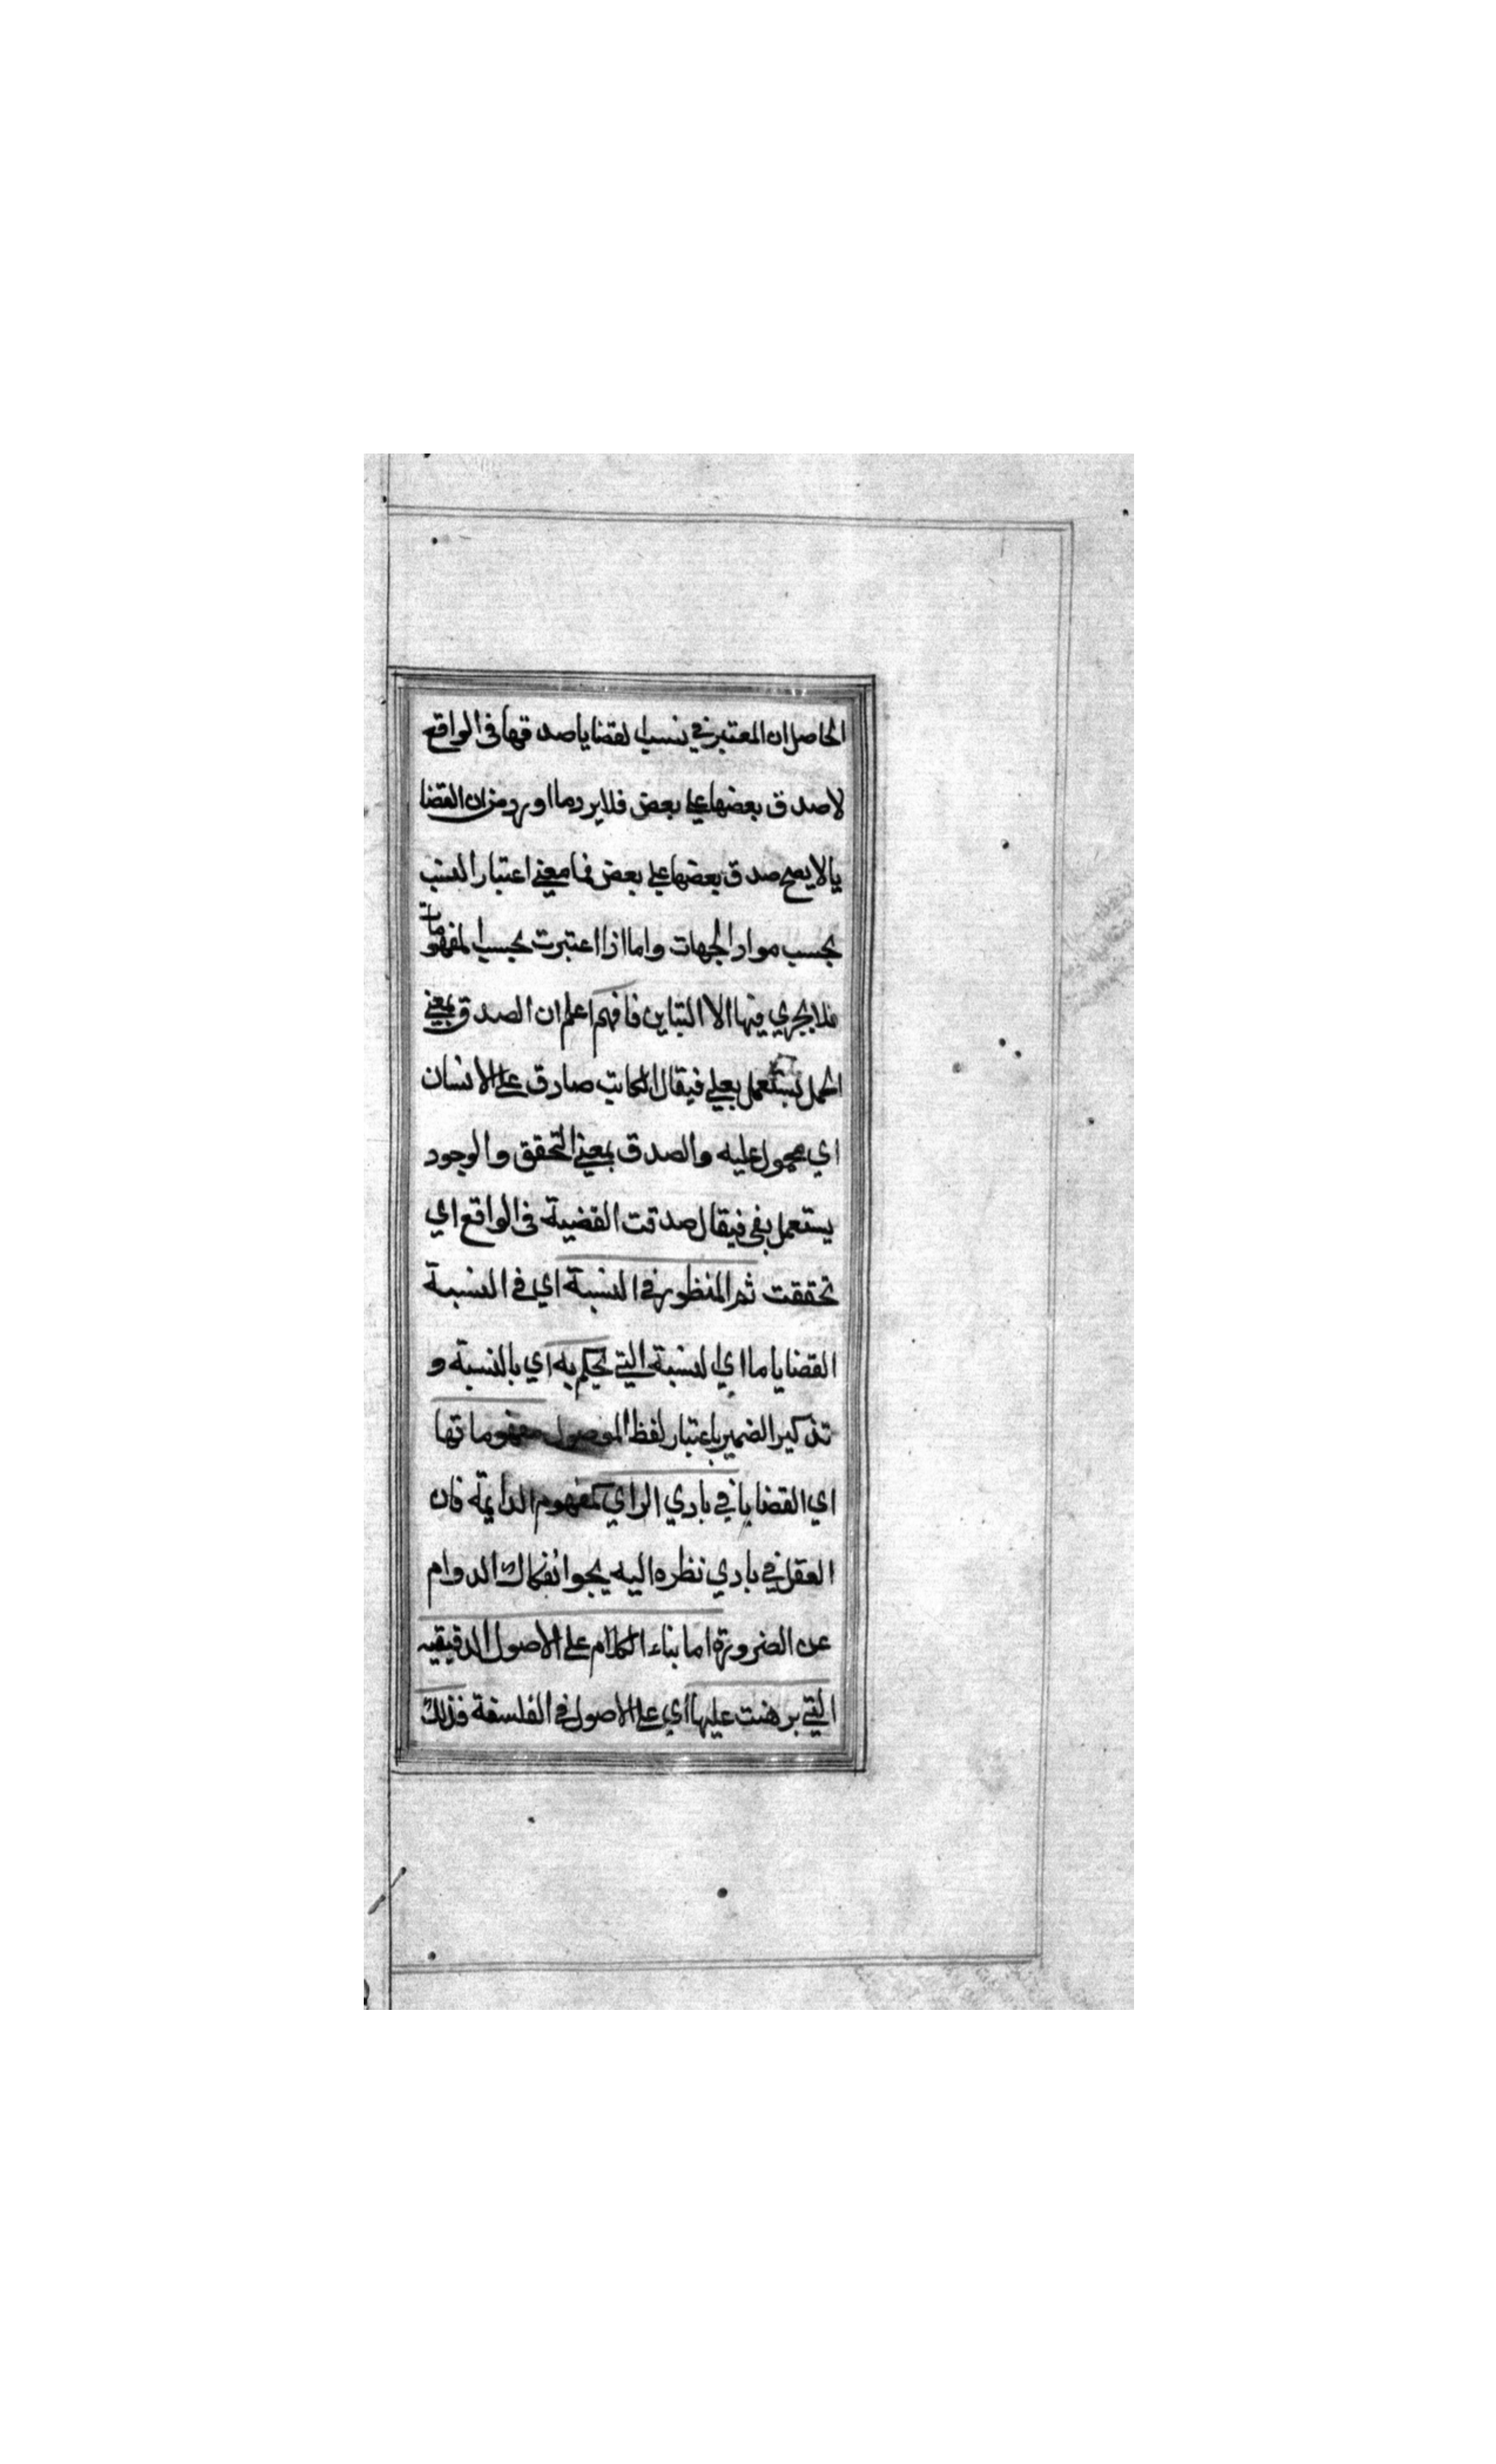 الحاصل ان المعتبر في نسب القضايا صدقها في الواقع
لا صدق بعضها على بعض فلا يرد ما اورد من ان القضا
يا لا يصح صدق بعضها على بعض فما معنى اعتبار النسب
بحسب مواد الجهات واما اذا اعتبرت بحسب المفهومات
فلا يجري فيها الا التباين فافهم اعلم ان الصدق بمعنى
الحمل يستعمل بعلى فيقال الكاتب صادق على الانسان
اي محمول عليه والصدق بمعنى التحقق والوجود
يستعمل بفي فيقال صدقت القضية في الواقع اي
تحققت ثم المنظور في النسبة اي في النسبة
القضايا ما اي النسبة التي يحكم به اي بالنسبة و
تذكير الضمير باعتبار لفظ الموصول مفهوماتها
اي القضايا في بادي الراي كمفهوم الدايمة فان
العقل في بادي نظره اليه يجوا نفكاك الدوام
عن الضرورة اما بناء الكلام على الاصول الدقيقيه
التي برهنت عليها اي على الاصول في الفلسفة فذلك